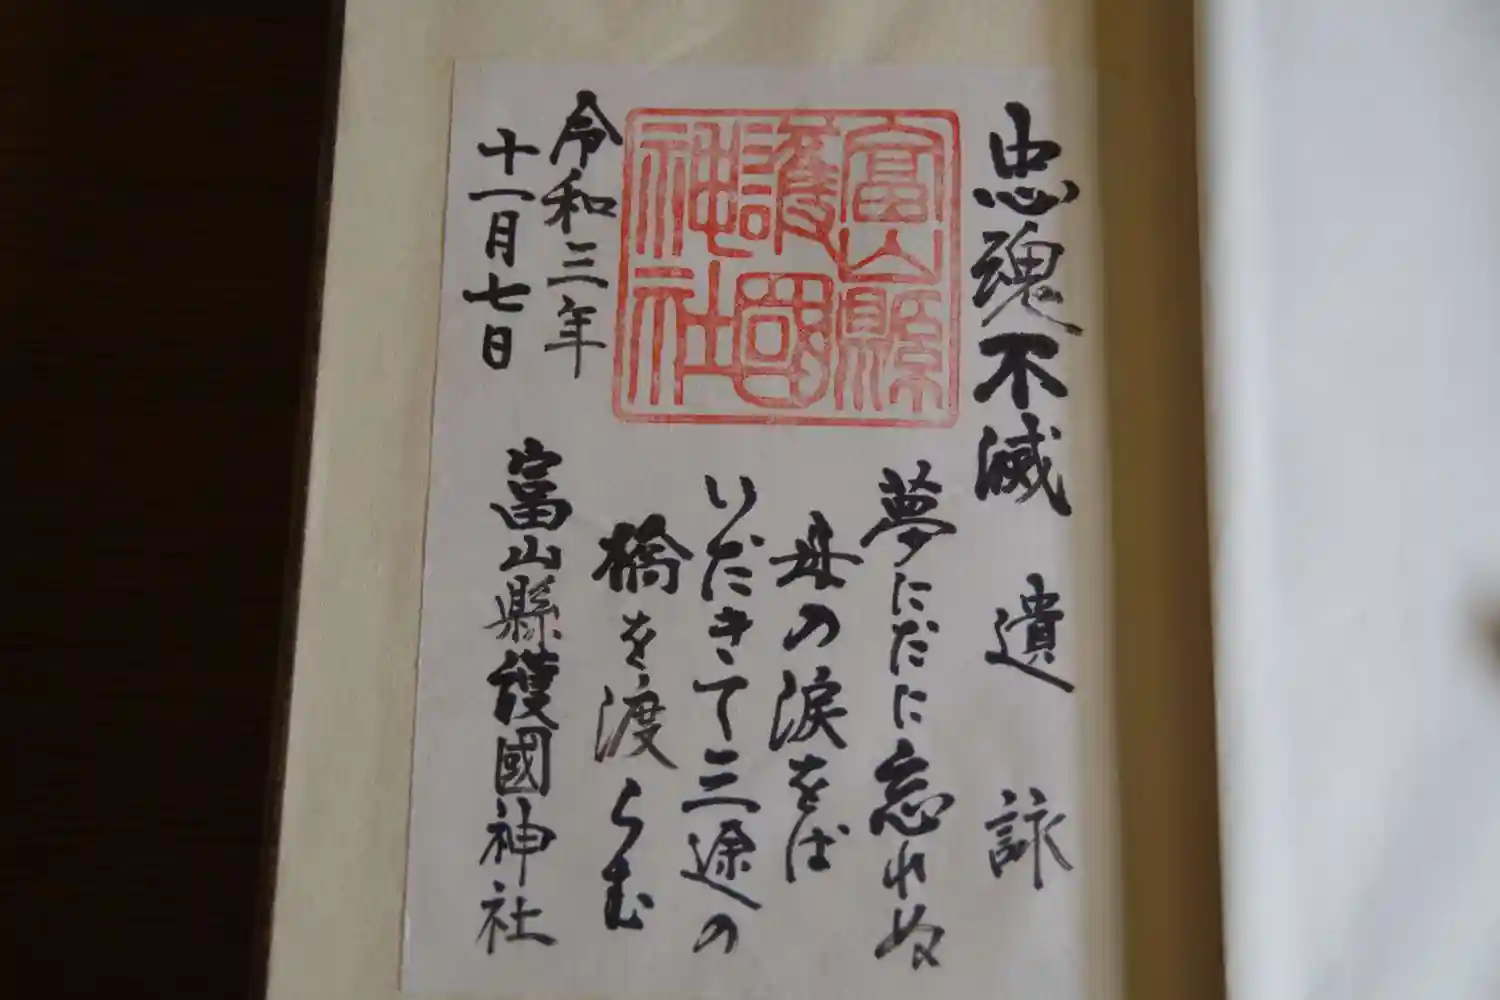 忠魂不滅　遺詠
富山縣護國神社
夢にだに忘れぬ
母の涙をば
いだきて三途の
橋を渡らむ
令和三年
十一月七日
富山縣護國神社